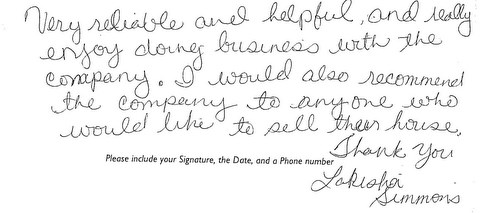 Very reliable and helpful, and really
enjoy doing business with the
company. I would also recommend
the company to anyone who
would like to sell their house.
Thank You
Please include your Signature, the Date, and a Phone number
Lakisha
Simmons